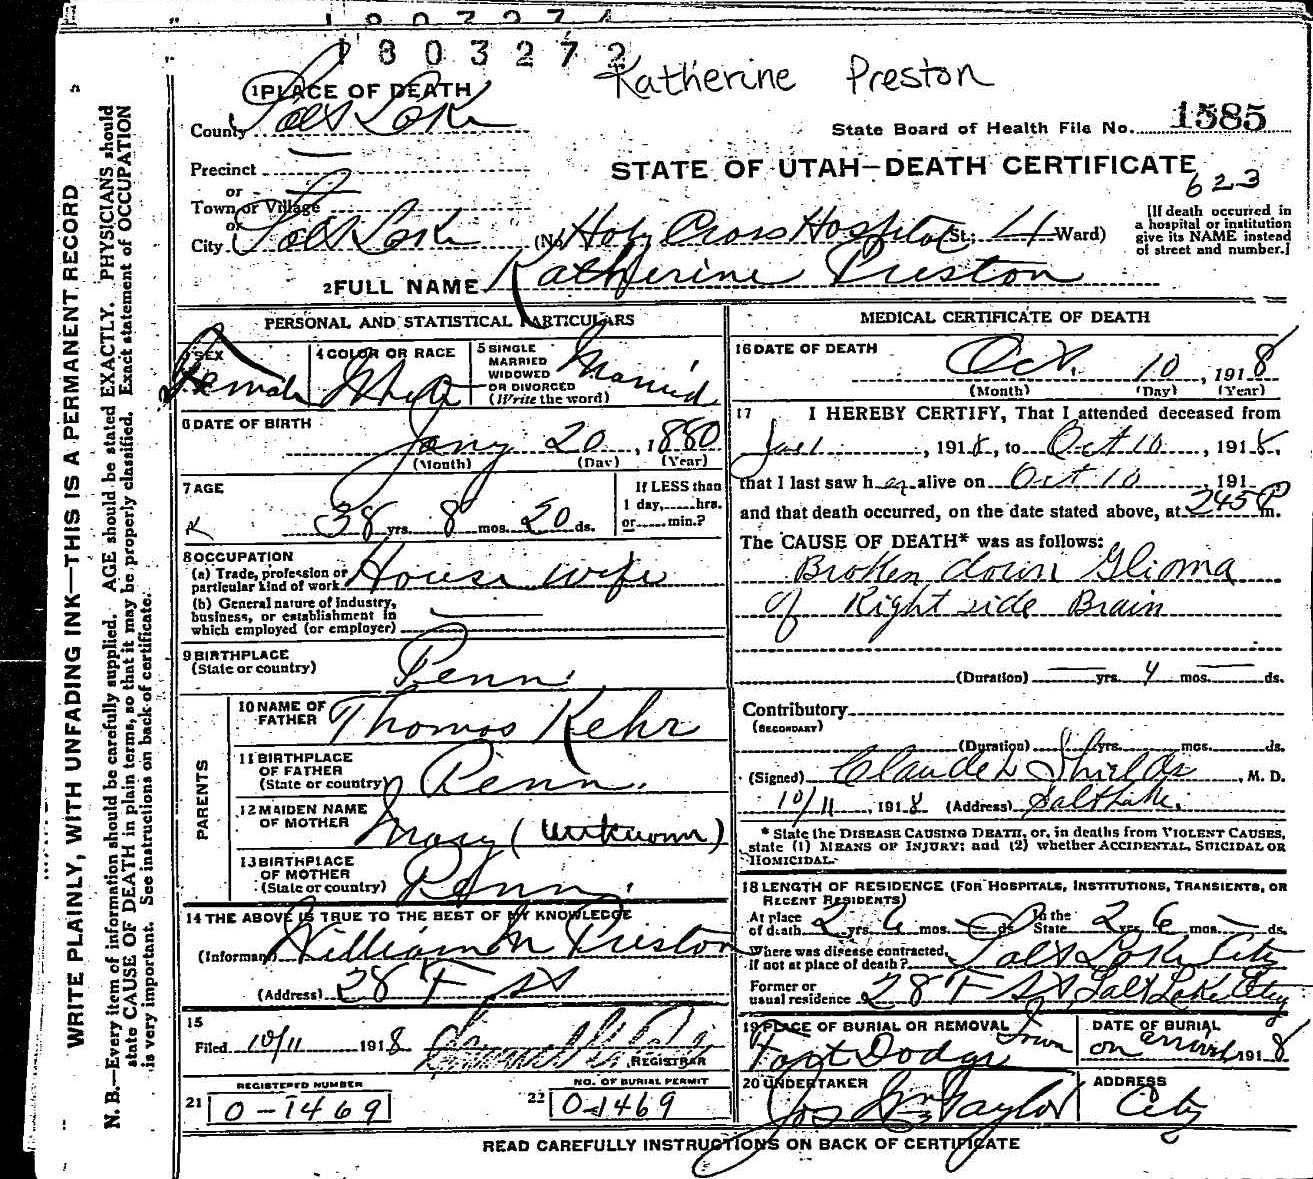 1803274
1803272
Katherine Preston
1 PLACE OF DEATH
County Salt Lake
State Board of Health File No. 1585
Precinct —
STATE OF UTAH—DEATH CERTIFICATE
623
or
Town or Village —
or
City Salt Lake (No. Holy Cross Hospital St.; 4 Ward)
[If death occurred in
a hospital or institution
give its NAME instead
of street and number.]
2 FULL NAME Katherine Preston
PERSONAL AND STATISTICAL PARTICULARS
3 SEX Female
4 COLOR OR RACE White
5 SINGLE
MARRIED
WIDOWED
OR DIVORCED
(Write the word) Married
6 DATE OF BIRTH
Jany 20, 1880
(Month) (Day) (Year)
7 AGE
38 yrs. 8 mos. 20 ds.
If LESS than
1 day, hrs.
or min.?
8 OCCUPATION
(a) Trade, profession or
particular kind of work House wife
(b) General nature of industry,
business, or establishment in
which employed (or employer)
9 BIRTHPLACE
(State or country) Penn.
PARENTS
10 NAME OF
FATHER Thomas Kehr
11 BIRTHPLACE
OF FATHER
(State or country) Penn.
12 MAIDEN NAME
OF MOTHER Mary (Unknown)
13 BIRTHPLACE
OF MOTHER
(State or country) Penn.
14 THE ABOVE IS TRUE TO THE BEST OF MY KNOWLEDGE
(Informant) William Preston
(Address) 28 F St
15
Filed 10/11 1918
REGISTRAR
REGISTERED NUMBER
21 0-1469
NO. OF BURIAL PERMIT
22 0-1469
MEDICAL CERTIFICATE OF DEATH
16 DATE OF DEATH
Oct. 10, 1918
(Month) (Day) (Year)
17 I HEREBY CERTIFY, That I attended deceased from
1918, to Oct 10, 1918,
that I last saw her alive on Oct 10, 191
and that death occurred, on the date stated above, at 245 P m.
The CAUSE OF DEATH* was as follows:
Broken down Glioma
of Right side Brain
(Duration) — yrs. 4 mos. — ds.
Contributory
(SECONDARY)
(Duration) yrs. mos. ds.
(Signed) Claude L Shields, M. D.
10/11, 1918 (Address) Salt Lake.
* State the DISEASE CAUSING DEATH, or, in deaths from VIOLENT CAUSES,
state (1) MEANS OF INJURY; and (2) whether ACCIDENTAL, SUICIDAL OR
HOMICIDAL.
18 LENGTH OF RESIDENCE (FOR HOSPITALS, INSTITUTIONS, TRANSIENTS, OR
RECENT RESIDENTS)
At place
of death 2 yrs. 6 mos. — ds. In the
State 2 yrs. 6 mos. — ds.
Where was disease contracted,
if not at place of death? Salt Lake City
Former or
usual residence 28 F St Salt Lake City
19 PLACE OF BURIAL OR REMOVAL
Fort Dodge Iowa
DATE OF BURIAL
on arrival 1918
20 UNDERTAKER
Jos Wm Taylor
ADDRESS
City
READ CAREFULLY INSTRUCTIONS ON BACK OF CERTIFICATE
WRITE PLAINLY, WITH UNFADING INK—THIS IS A PERMANENT RECORD
N. B.—Every item of information should be carefully supplied. AGE should be stated EXACTLY. PHYSICIANS should
state CAUSE OF DEATH in plain terms, so that it may be properly classified. Exact statement of OCCUPATION
is very important. See instructions on back of certificate.